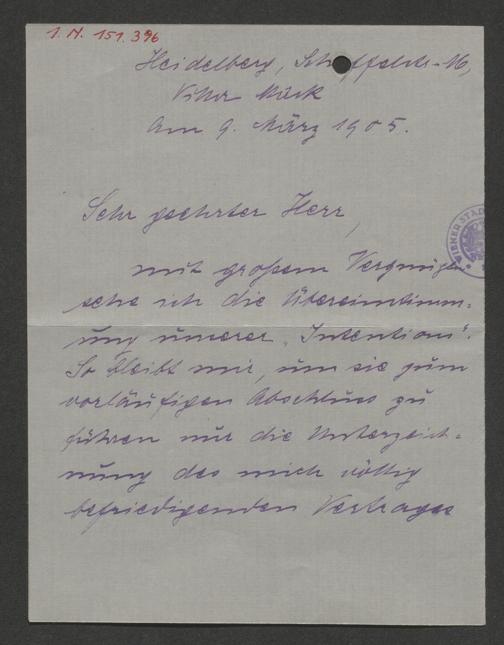 I. N. 151.396
Heidelberg, Scheffelstr. 16,
Villa
am 9. März 1905.
WIENER STAD
Sehr geehrter Herr,
mit großem Vergnügen
sehe ich die Übereinstimm-
ung unserer „Intentions“.
So bleibt mir, um sie zum
vorläufigen Abschluss zu
führen nur die Unterzeich-
nung des mich völlig
befriedigenden Vertrages